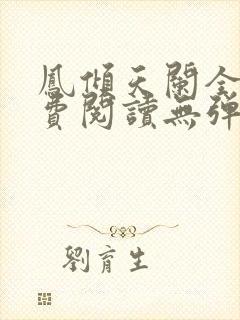 鳳傾天闌全
費閱讀無彈
劉育生